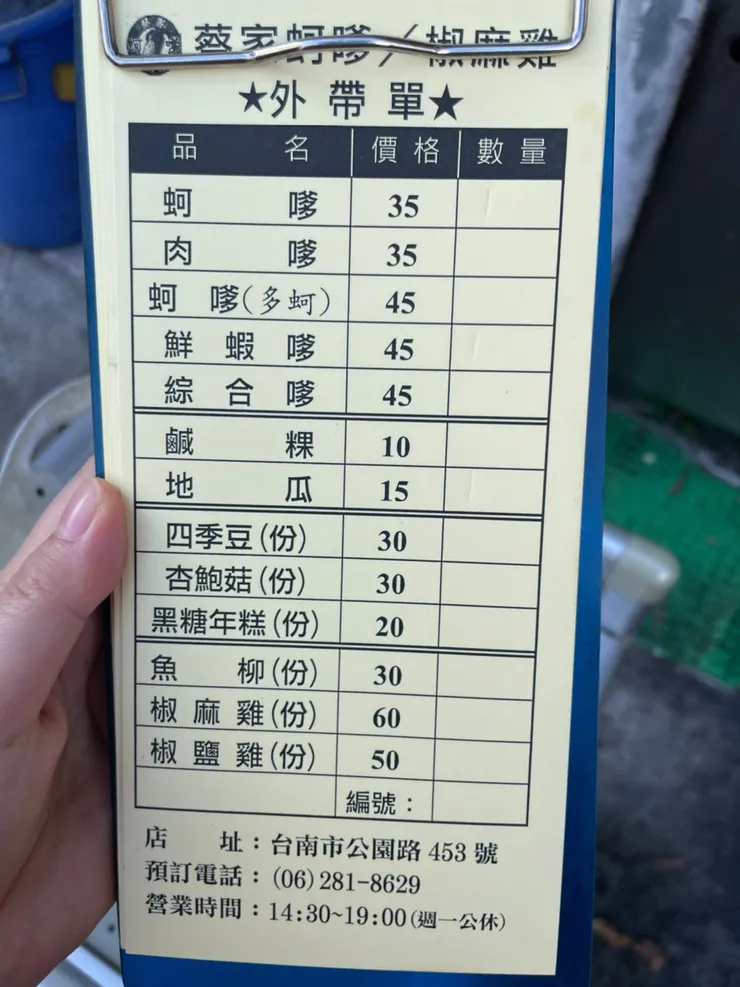 蔡家蚵嗲／椒麻雞
★外帶單★
品名 價格 數量
蚵嗲 35
肉嗲 35
蚵嗲(多蚵) 45
鮮蝦嗲 45
綜合嗲 45
鹹粿 10
地瓜 15
四季豆(份) 30
杏鮑菇(份) 30
黑糖年糕(份) 20
魚柳(份) 30
椒麻雞(份) 60
椒鹽雞(份) 50
編號：
店址：台南市公園路 453 號
預訂電話：(06)281-8629
營業時間：14:30~19:00(週一公休)